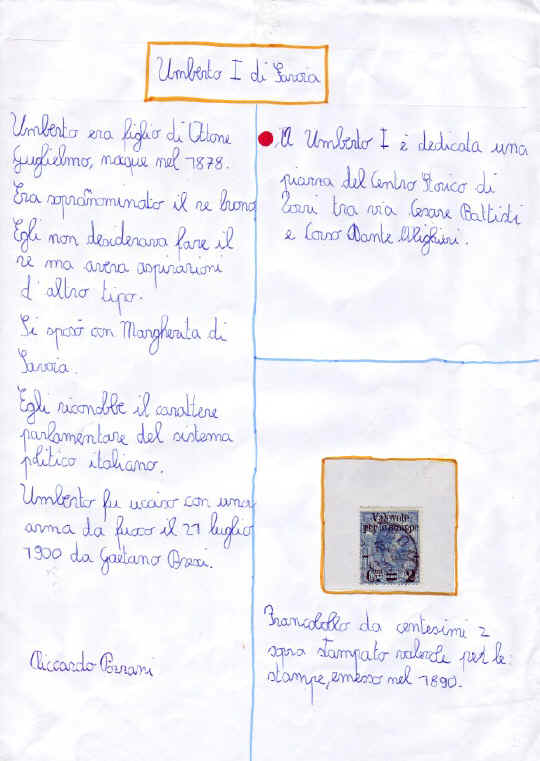 Umberto I di Savoia
Umberto era figlio di Ottone
Guglielmo, naque nel 1878.
Era soprannominato il re buono
Egli non desiderava fare il
re ma aveva aspirazioni
d'altro tipo.
Si sposò con Margherata di
Savoia.
Egli riconobbe il carattere
parlamentare del sistema
politico italiano.
Umberto fu ucciso con una
arma da fuoco il 27 luglio
1900 da Gaetano Bresci.
Riccardo
A Umberto I è dedicata una
piazza del Centro Storico di
tra via Cesare Battisti
e Corso Dante Alighieri.
Valevole
per le stampe
Francobollo da centesimi 2
sopra stampato valevole per le
stampe, emesso nel 1890.